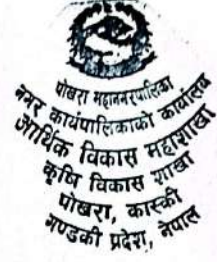 पोखरा महानगरपालिका
नगर कार्यपालिकाको कार्यालय
आर्थिक विकास महाशाखा
कृषि विकास शाखा
पोखरा, कास्की
गण्डकी प्रदेश, नेपाल